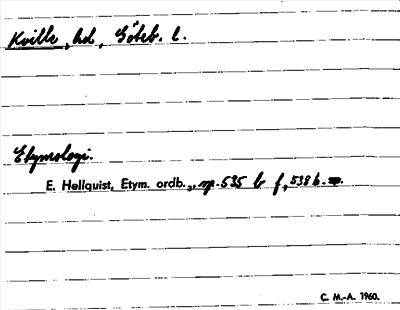 Kville, hd, Göteb. l.
Etymologi.
E. Hellquist, Etym. ordb., sp. 535 b f, 538 b.
C. M.-A. 1960.